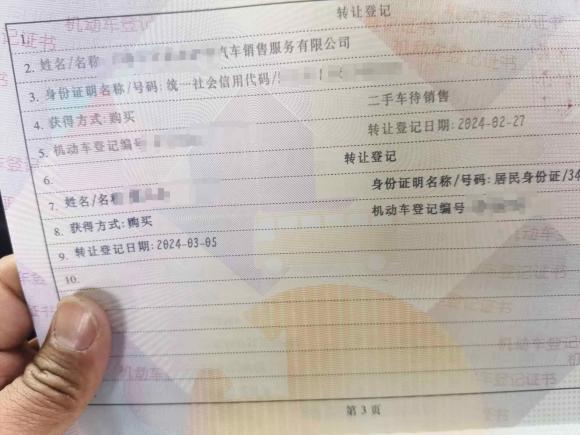 转让登记
1.
2. 姓名/名称 汽车销售服务有限公司
3. 身份证明名称/号码: 统一社会信用代码/
二手车待销售
4. 获得方式: 购买
转让登记日期: 2024-02-27
5. 机动车登记编号
转让登记
6.
身份证明名称/号码: 居民身份证/34
7. 姓名/名称
机动车登记编号
8. 获得方式: 购买
9. 转让登记日期: 2024-03-05
10.
第 3 页